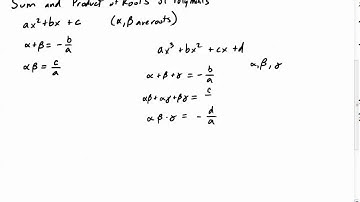 Sum and Product of Roots of Polynomials
ax² + bx + c (α, β are roots)
α + β = - b/a
αβ = c/a
ax³ + bx² + cx + d
α, β, γ
α + β + γ = - b/a
αβ + αγ + βγ = c
α β · γ = - d/a